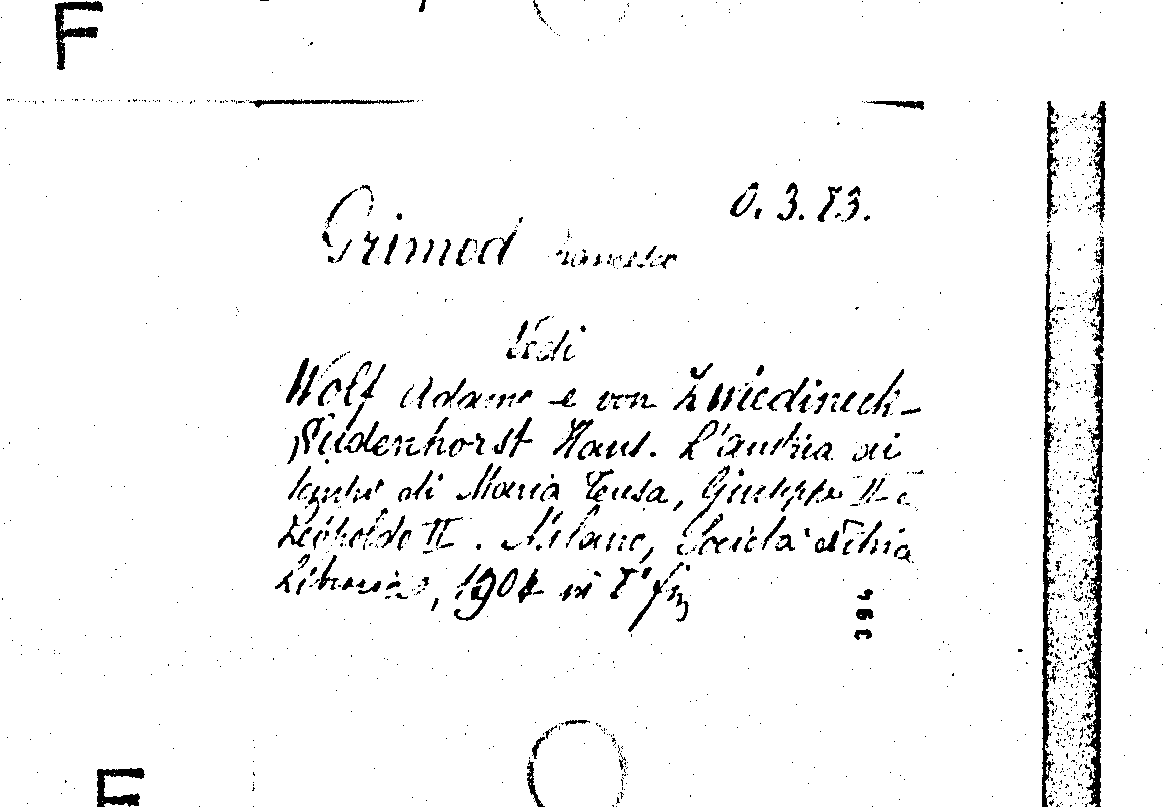 F
O. 3. 83.
Grimod Francesco
Vedi
Wolf Adamo e von Zwiedineck-
Südenhorst Hans. L'Austria ai
tempi di Maria Teresa, Giuseppe II e
Leopoldo II. Milano, Società Editrice
Libraria, 1904 in 8° fig
F